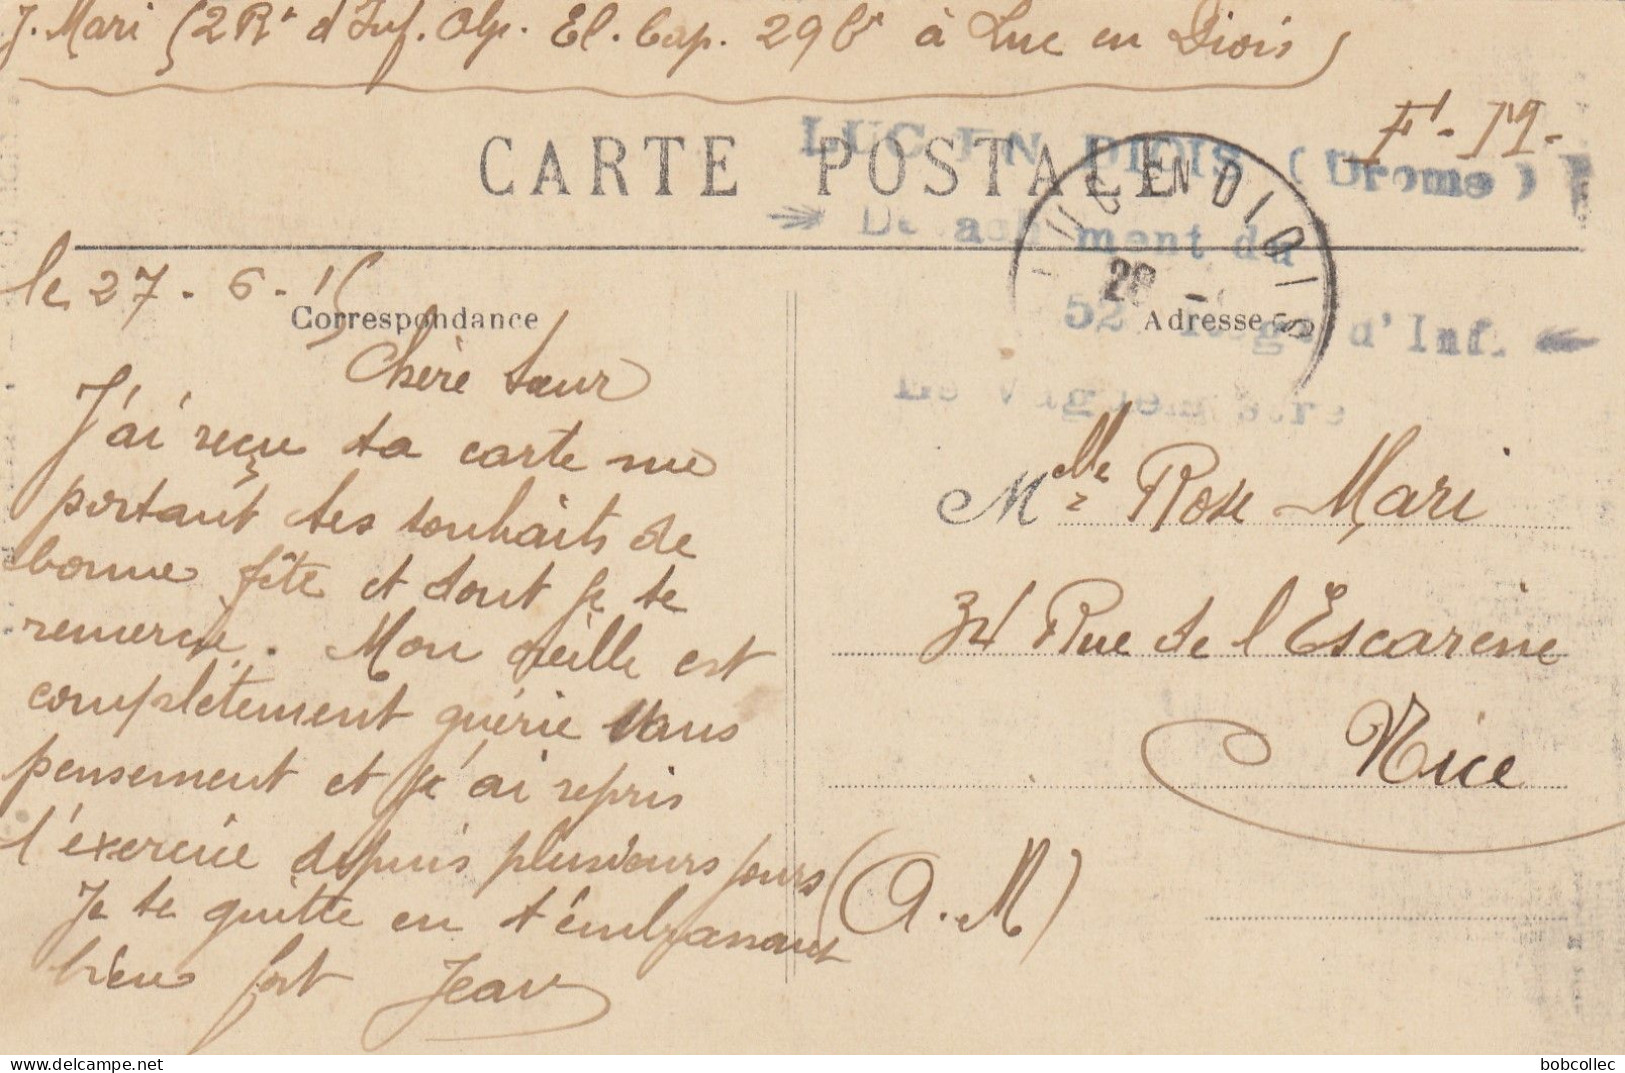 J. Mari (2 Rt d'Inf. Alp. El. Cap. 29 Cie à Luc en Diois)
F. M.
CARTE POSTALE
LUC EN DIOIS (Drome)
Détachement du
52 Regt d'Inf.
Le Vaguemestre
LUC EN DIOIS
28
Correspondance
Adresse
le 27-6-15
Chère Sœur
J'ai reçu ta carte me
portant tes souhaits de
bonne fête et dont je te
remercie. Mon oreille est
complètement guérie sans
pensement et j'ai repris
l'exercice depuis plusieurs jours
Je te quitte en t'embrassant
bien fort Jean
Melle Rose Mari
34 Rue de l'Escarène
Nice
(A.M)
bobcollec